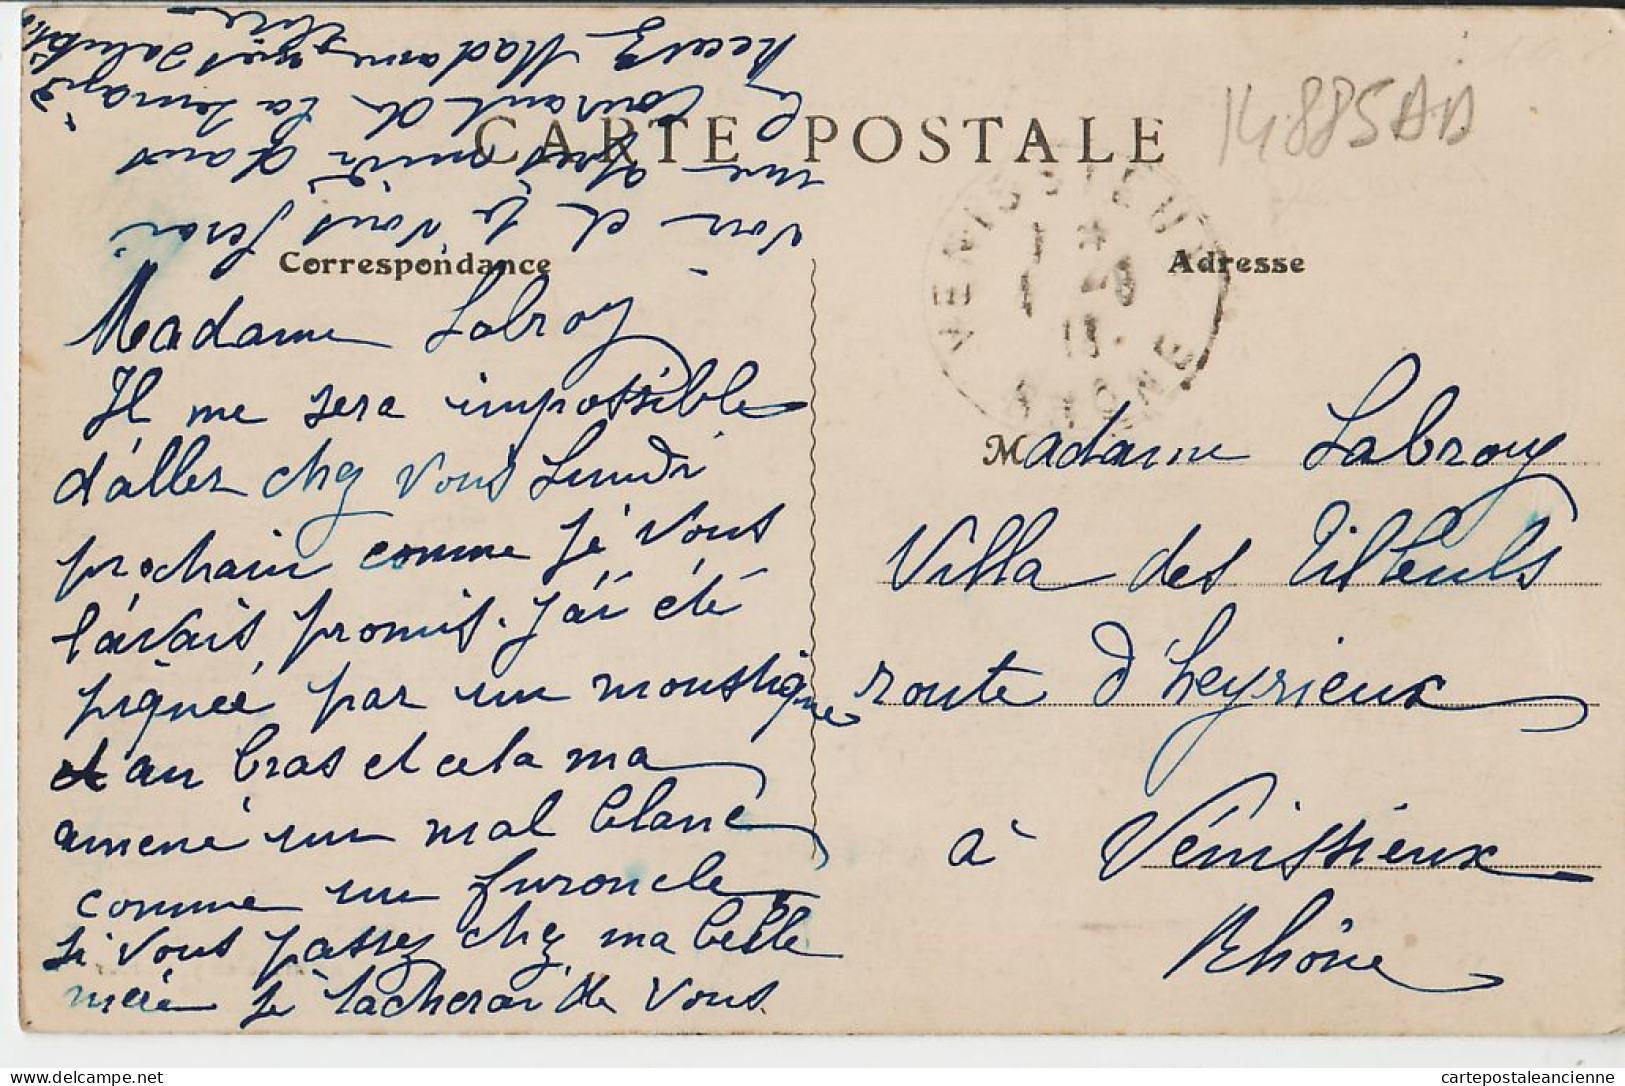 CARTE POSTALE
14885AD
Correspondance
Adresse
VENISSIEUX
RHONE
Madame Labroy
Il me sera impossible
d'aller chez vous Lundi
prochain comme je vous
l'avais promis. j'ai été
piquée par un moustique
au bras et cela ma
amené un mal blanc
comme un furoncle
si vous passez chez ma belle
mère je tacherai de vous
voir et je vous ferai
vos
le courant de la semaine
Recevez Madame mes salutations
Madame Labroy
Villa des Tilleuls
route d'heyrieux
à Vénissieux
Rhône
delcampe.net
cartepostaleancienne